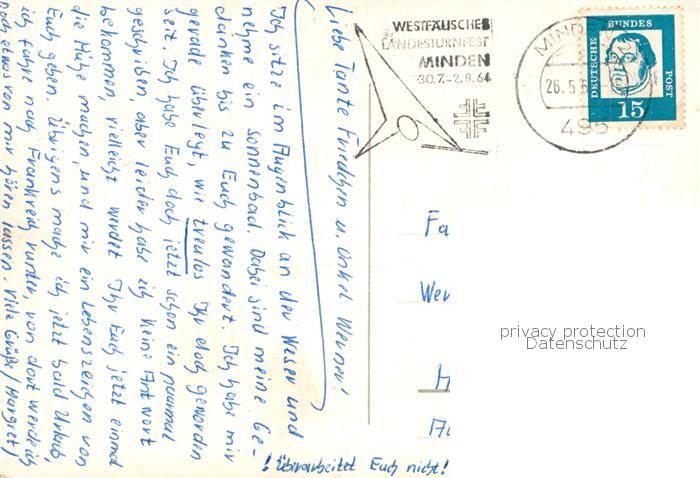 Liebe Tante Friedchen u. Onkel Werner!
Ich sitze im Augenblick an der Weser und
nehme ein Sonnenbad. Dabei sind meine Ge-
danken bis zu Euch gewandert. Ich habe mir
gerade überlegt, wie treulos Ihr doch geworden
seit. Ich habe Euch doch jetzt schon ein paarmal
geschrieben, aber leider habe ich keine Antwort
bekommen, vielleicht werdet Ihr Euch jetzt einmal
die Mühe machen, und mir ein Lebenszeichen von
Euch geben. Übrigens mache ich jetzt bald Urlaub,
ich fahre nach Frankreich runter, von dort werde ich
noch etwas von mir hören lassen. Viele Grüße / Margret /
! Überarbeitet Euch nicht!
WESTFÄLISCHES
LANDESTURNFEST
MINDEN
30.7.-2.8.64
MINDEN
26.5.6
495
DEUTSCHE BUNDES POST
15
Fa
Wer
privacy protection
Datenschutz